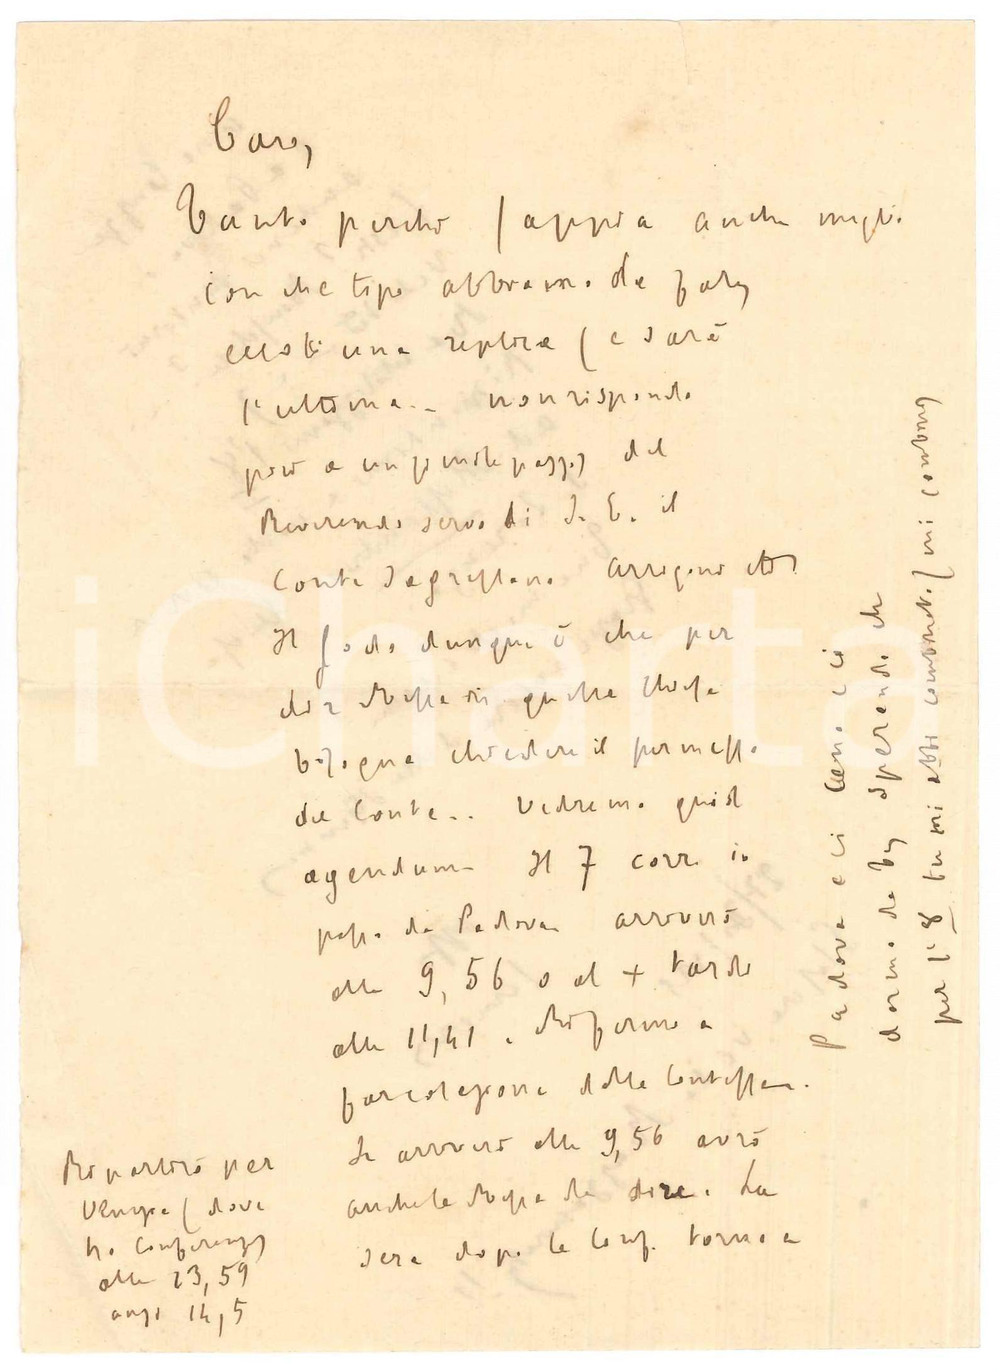 Caro,
Tanto perchè sappia anche meglio
con che tipo abbiamo da fare
eccoti una replica (e sarà
l'ultima.. non rispondo
però a un simile pazzo) del
Reverendo servo di S. E. il
Conte Sagrestano Arrigoni etc
Il sodo dunque è che per
dir Messa in quella Chiesa
bisogna chiedere il permesso
del Conte.. Vedremo quid
agendum Il 7 corr io
passo da Padova arriverò
alle 9,56 o al + tardi
alle 11,41.
alla Contessa.
Se arriverò alle 9,56 avrò
anche la Messa da dire. La
sera dopo la Conf. torno a
Ripartirò per
Venezia (dove
ho Conferenza)
alle 13,59
anzi 14,5
Padova e ci ceno e ci
dormo da te, sperando che
per l'8 tu mi abbi combinato
iCharta